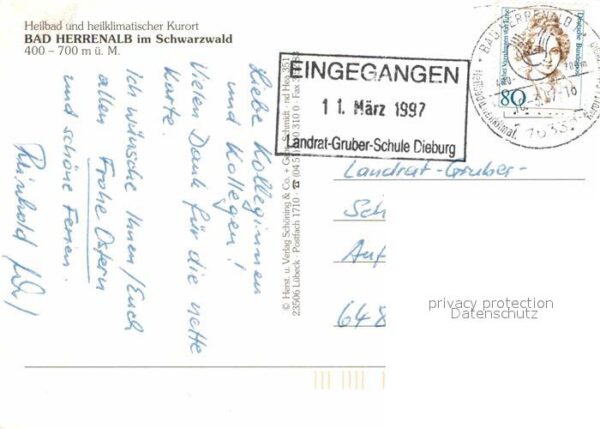 Heilbad und heilklimatischer Kurort
BAD HERRENALB im Schwarzwald
400 – 700 m ü. M.
Liebe Kolleginnen
und Kollegen!
Vielen Dank für die nette
Karte.
Ich wünsche Ihnen/Euch
allen Frohe Ostern
und schöne Ferien.
Reinhold
© Herst. u. Verlag Schöning & Co. + Gebr. Schmidt
23506 Lübeck · Postfach 1710
EINGEGANGEN
11. März 1997
Landrat-Gruber-Schule Dieburg
BAD HERRENALB
80
Deutsche Bundespost
Landrat-Gruber-
Sch
Auf
648
privacy protection
Datenschutz